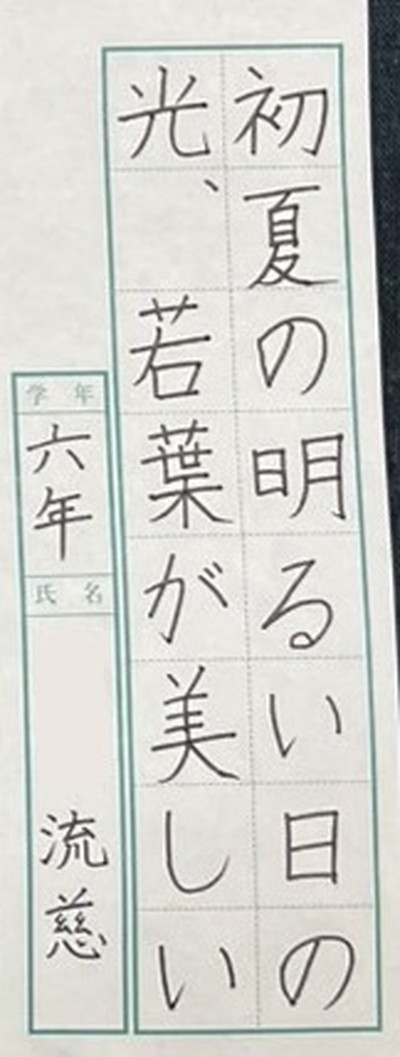 初夏の明るい日の
光、若葉が美しい
学年
六年
氏名
流慈